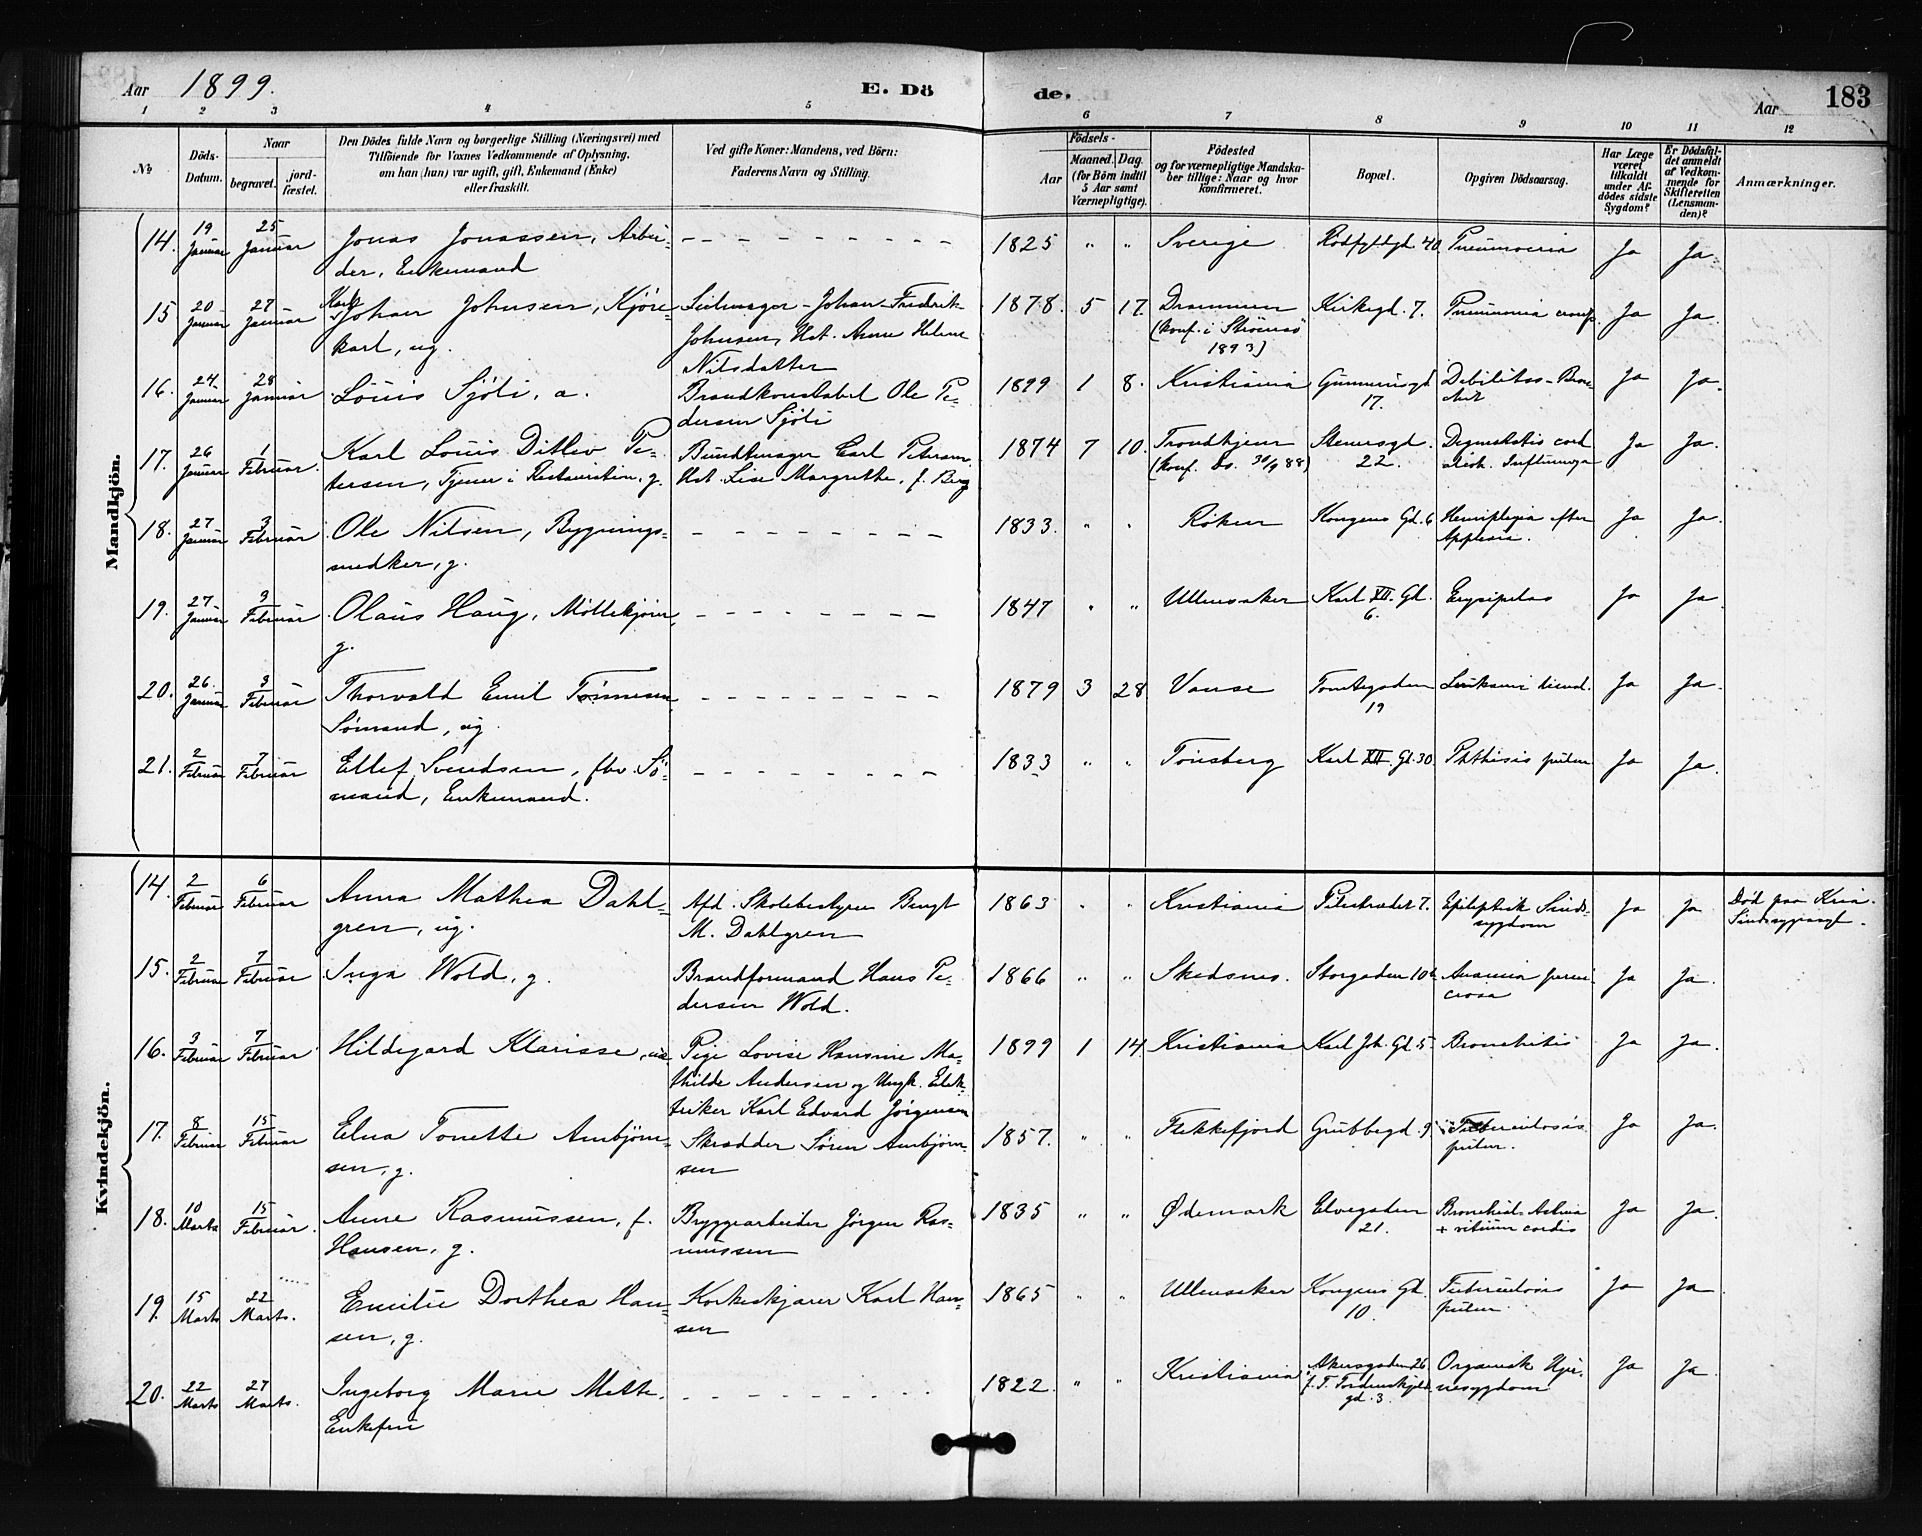 Aar 1899. E. Dö de. Aar 183
1 2 3 4 5 6 7 8 9 10 11 12
No. Döds-Datum. Naar begravet. jord-fæstet. Den Dödes fulde Navn og borgerlige Stilling (Næringsvei) med Tilföiende for Voxnes Vedkommende af Oplysning, om han (hun) var ugift, gift, Enkemand (Enke) eller fraskilt. Ved gifte Koner: Mandens, ved Börn: Faderens Navn og Stilling. Födsels- Aar Maaned. Dag. (for Börn indtil 5 Aar samt Værnepligtige). Födested og for værnepligtige Mandskaber tillige: Naar og hvor konfirmeret. Bopæl. Opgiven Dödsaarsag. Har Læge været tilkaldt under Afdödes sidste Sygdom? Er Dödsfaldet anmeldt af Vedkommende for Skifteretten (Lensmanden)? Anmærkninger.
Mandkjön.
14. 19 Januar 25 Januar Jonas Jonassen, Arbeider, Enkemand 1825 " " Sverige 40 Pneumonia Ja Ja.
15 20 Januar 27 Januar Karl Johan Johnsen, Kjørekarl, ug. Seilmager Johan Fredrik Johnsen, Hst. Anne Helene Nilsdatter 1878. 5 17. Drammen (konf. i Strømsø 1893) Kirkegd. 7. Pneumonia croup Ja Ja.
16. 24 Januar 28 Januar Louis Sjöli, a. Brandkonstabel Ole Pedersen Sjöli 1899 1 8. Kristiania Gunnerusgd 17. Debilitas Ja Ja.
17. 26 Januar 1 Februar. Karl Louis Ditlev Petersen, Tjener i Restauration, g. Bundtmager Carl Petersen Hst. Lise Margrethe, f. Berg 1874 7 10. Trondhjem (konf. Ds. 30/9 88) Stenersgd. 22. cord Influenza Ja Ja.
18. 27 Januar 3 Februar Ole Nilsen, Bygningssnedker, g. 1833. " " Røken Kongens Gd. 6 Hemiplegia efter Apoplexia. Ja Ja.
19. 27 Januar 3 Februar Olaus Haug, g. 1847 " " Ullensaker Karl XII. Gd. 6. Erysipelas Ja Ja.
20. 26. Januar 3 Februar Thorvald Emil Tønnesen Sømand, ug. 1879 3 28 Vanse Tomtegaden 19 Ja Ja.
21. 2 Februar 7 Februar Ellef Svendsen, fhv. Sømand, Enkemand. 1833 " " Tønsberg Karl XII. Gd. 30. Phthisis pulm Ja Ja.
Kvindekjön.
14. 2 Februar 6 Februar Anna Mathea Dahlgren, ug. Afd. Skolebestyrer Bengt M. Dahlgren 1863 " " Kristiania Pilestrædet 7. Epileptisk Sindssygdom Ja Ja Død paa Kria. Sindssygeasyl.
15. 2 Februar 7 Februar Inga Wold, g. Brandformand Hans Pedersen Wold. 1866 " " Skedsmo. Storgaden 10 Anæmia perniciosa Ja Ja.
16. 3 Februar 7 Februar Hildegard Klarisse, Pige Lovise Hansine Mathilde Andersen og Ungk. Elektriker Karl Edvard Jörgensen 1899 1 14 Kristiania Karl Joh. Gd 5. Bronchitis Ja Ja.
17. 8 Februar 15 Februar Elna Tonette Ambjørnsen, g. Skrædder Søren Ambjørnsen 1857. " " Flekkefjord Grubbegd. 9 Tuberculosis pulm. Ja Ja.
18. 10 Marts 15 Februar. Anne Rasmussen, f. Hansen, g. Bryggearbeider Jörgen Rasmussen 1835 " " Ødemark Elvegaden 21. Bronchial-Astma + vitium cordis Ja Ja.
19. 15 Marts 22 Marts. Emilie Dorthea Hansen, g. Korkeskjærer Karl Hansen 1865 " " Ullensaker Kongens Gd. 10. Tuberculosis pulm. Ja Ja.
20. 22 Marts 27 Marts. Ingeborg Marie Mette, 1822. " " Kristiania Akersgaden 26 f. T. Tordenskjolds gd. 3. Organisk Hjertesygdom Ja Ja.